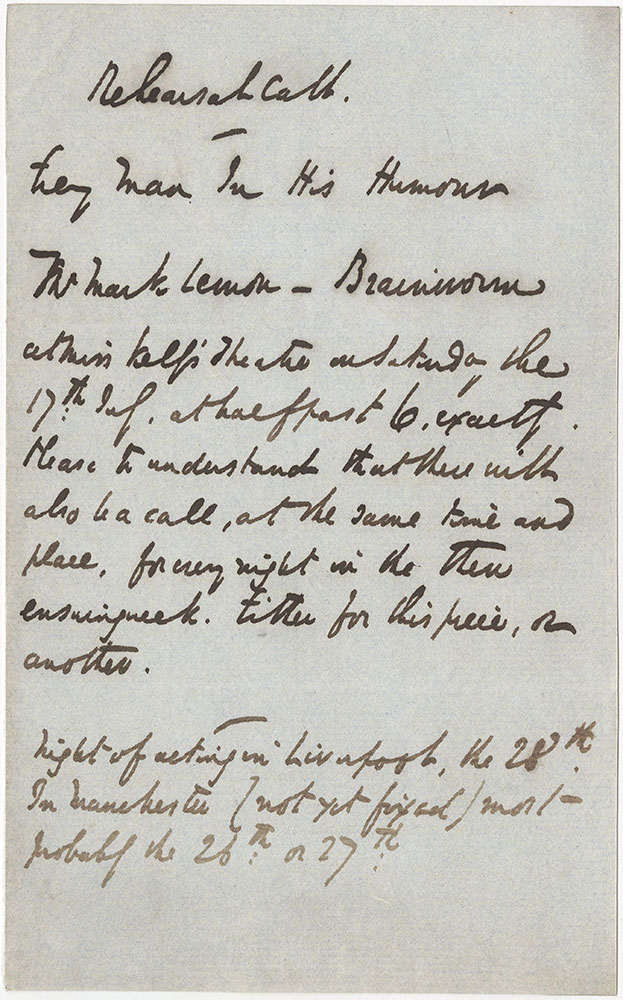 Rehearsal Call.
Every Man In His Humour
Mr Mark Lemon – Brainworm
at Miss Kelly's Theatre on Saturday the
17th July, at half past 6, exactly.
Please to understand that there will
also be a call, at the same time and
place, for every night in the then
ensuing week. Either for this piece, or
another.
Night of acting in Liverpool, the 28th.
In Manchester (not yet fixed) most
probably the 26th or 27th